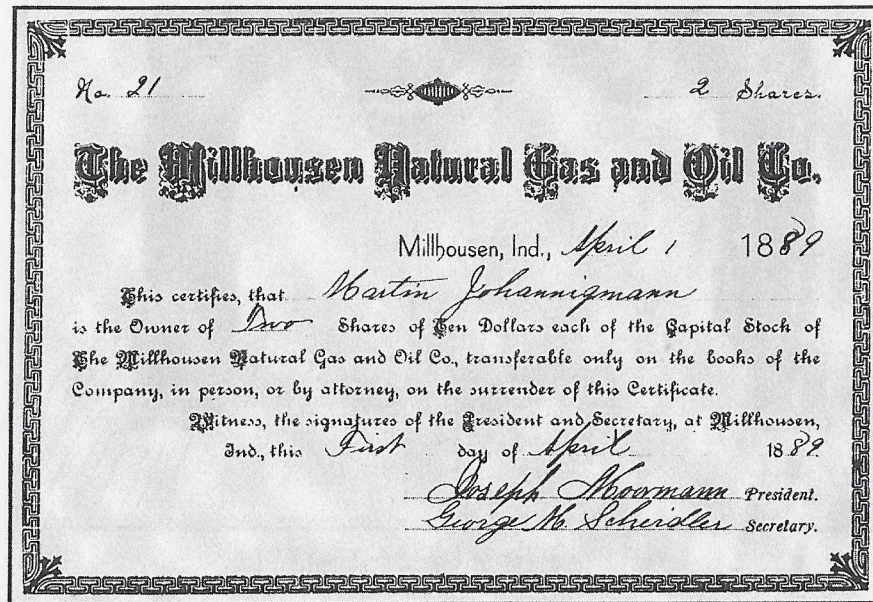 No. 21 2 Shares.
The Millhousen Natural Gas and Oil Co.
Millhousen, Ind., April 1 1889
This certifies, that Martin Johannigmann
is the Owner of Two Shares of Ten Dollars each of the Capital Stock of
The Millhousen Natural Gas and Oil Co., transferable only on the books of the
Company, in person, or by attorney, on the surrender of this Certificate.
Witness, the signatures of the President and Secretary, at Millhousen,
Ind., this First day of April 1889.
Joseph Moormann President.
George M. Scheidler Secretary.